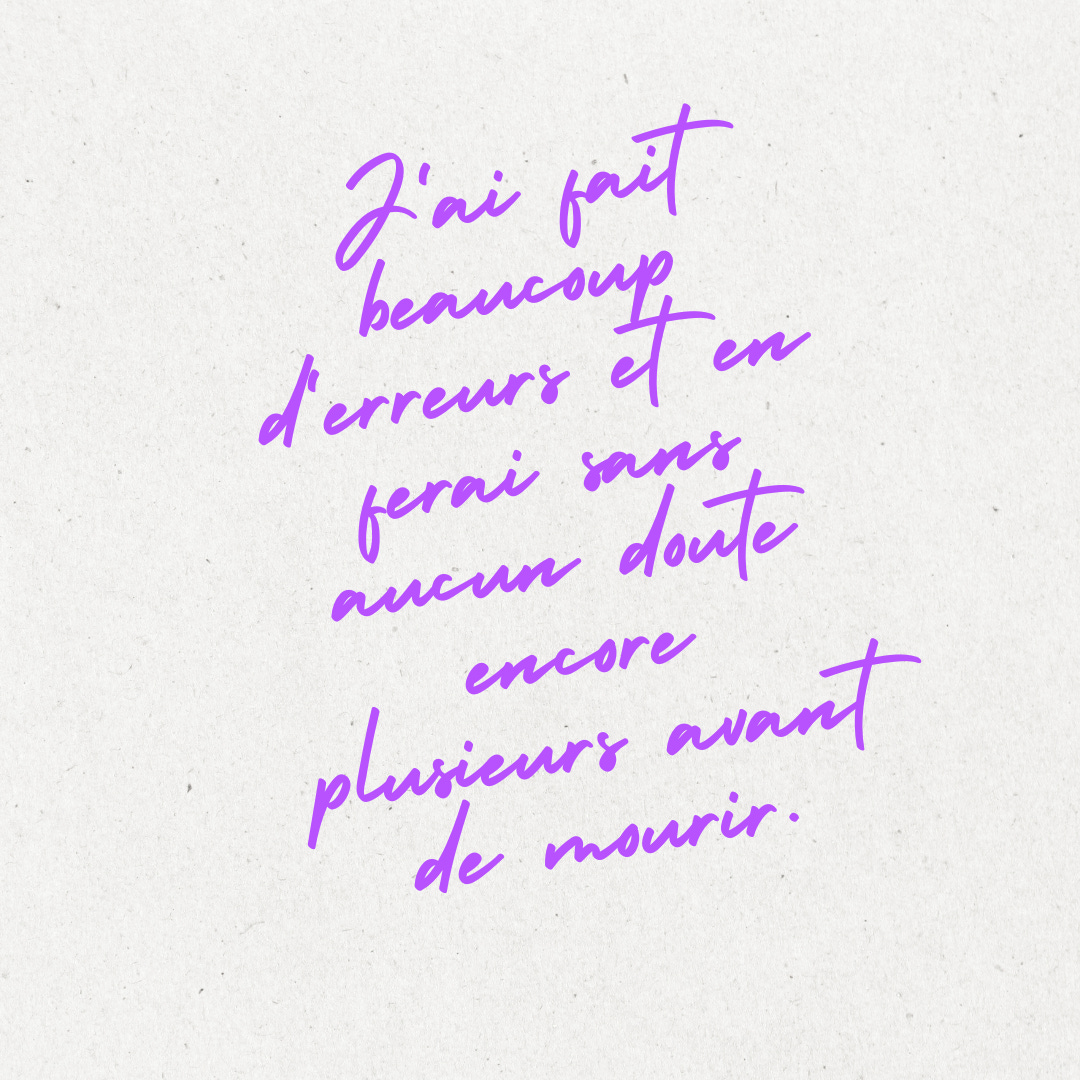 J'ai fait
beaucoup
d'erreurs et en
ferai sans
aucun doute
encore
plusieurs avant
de mourir.